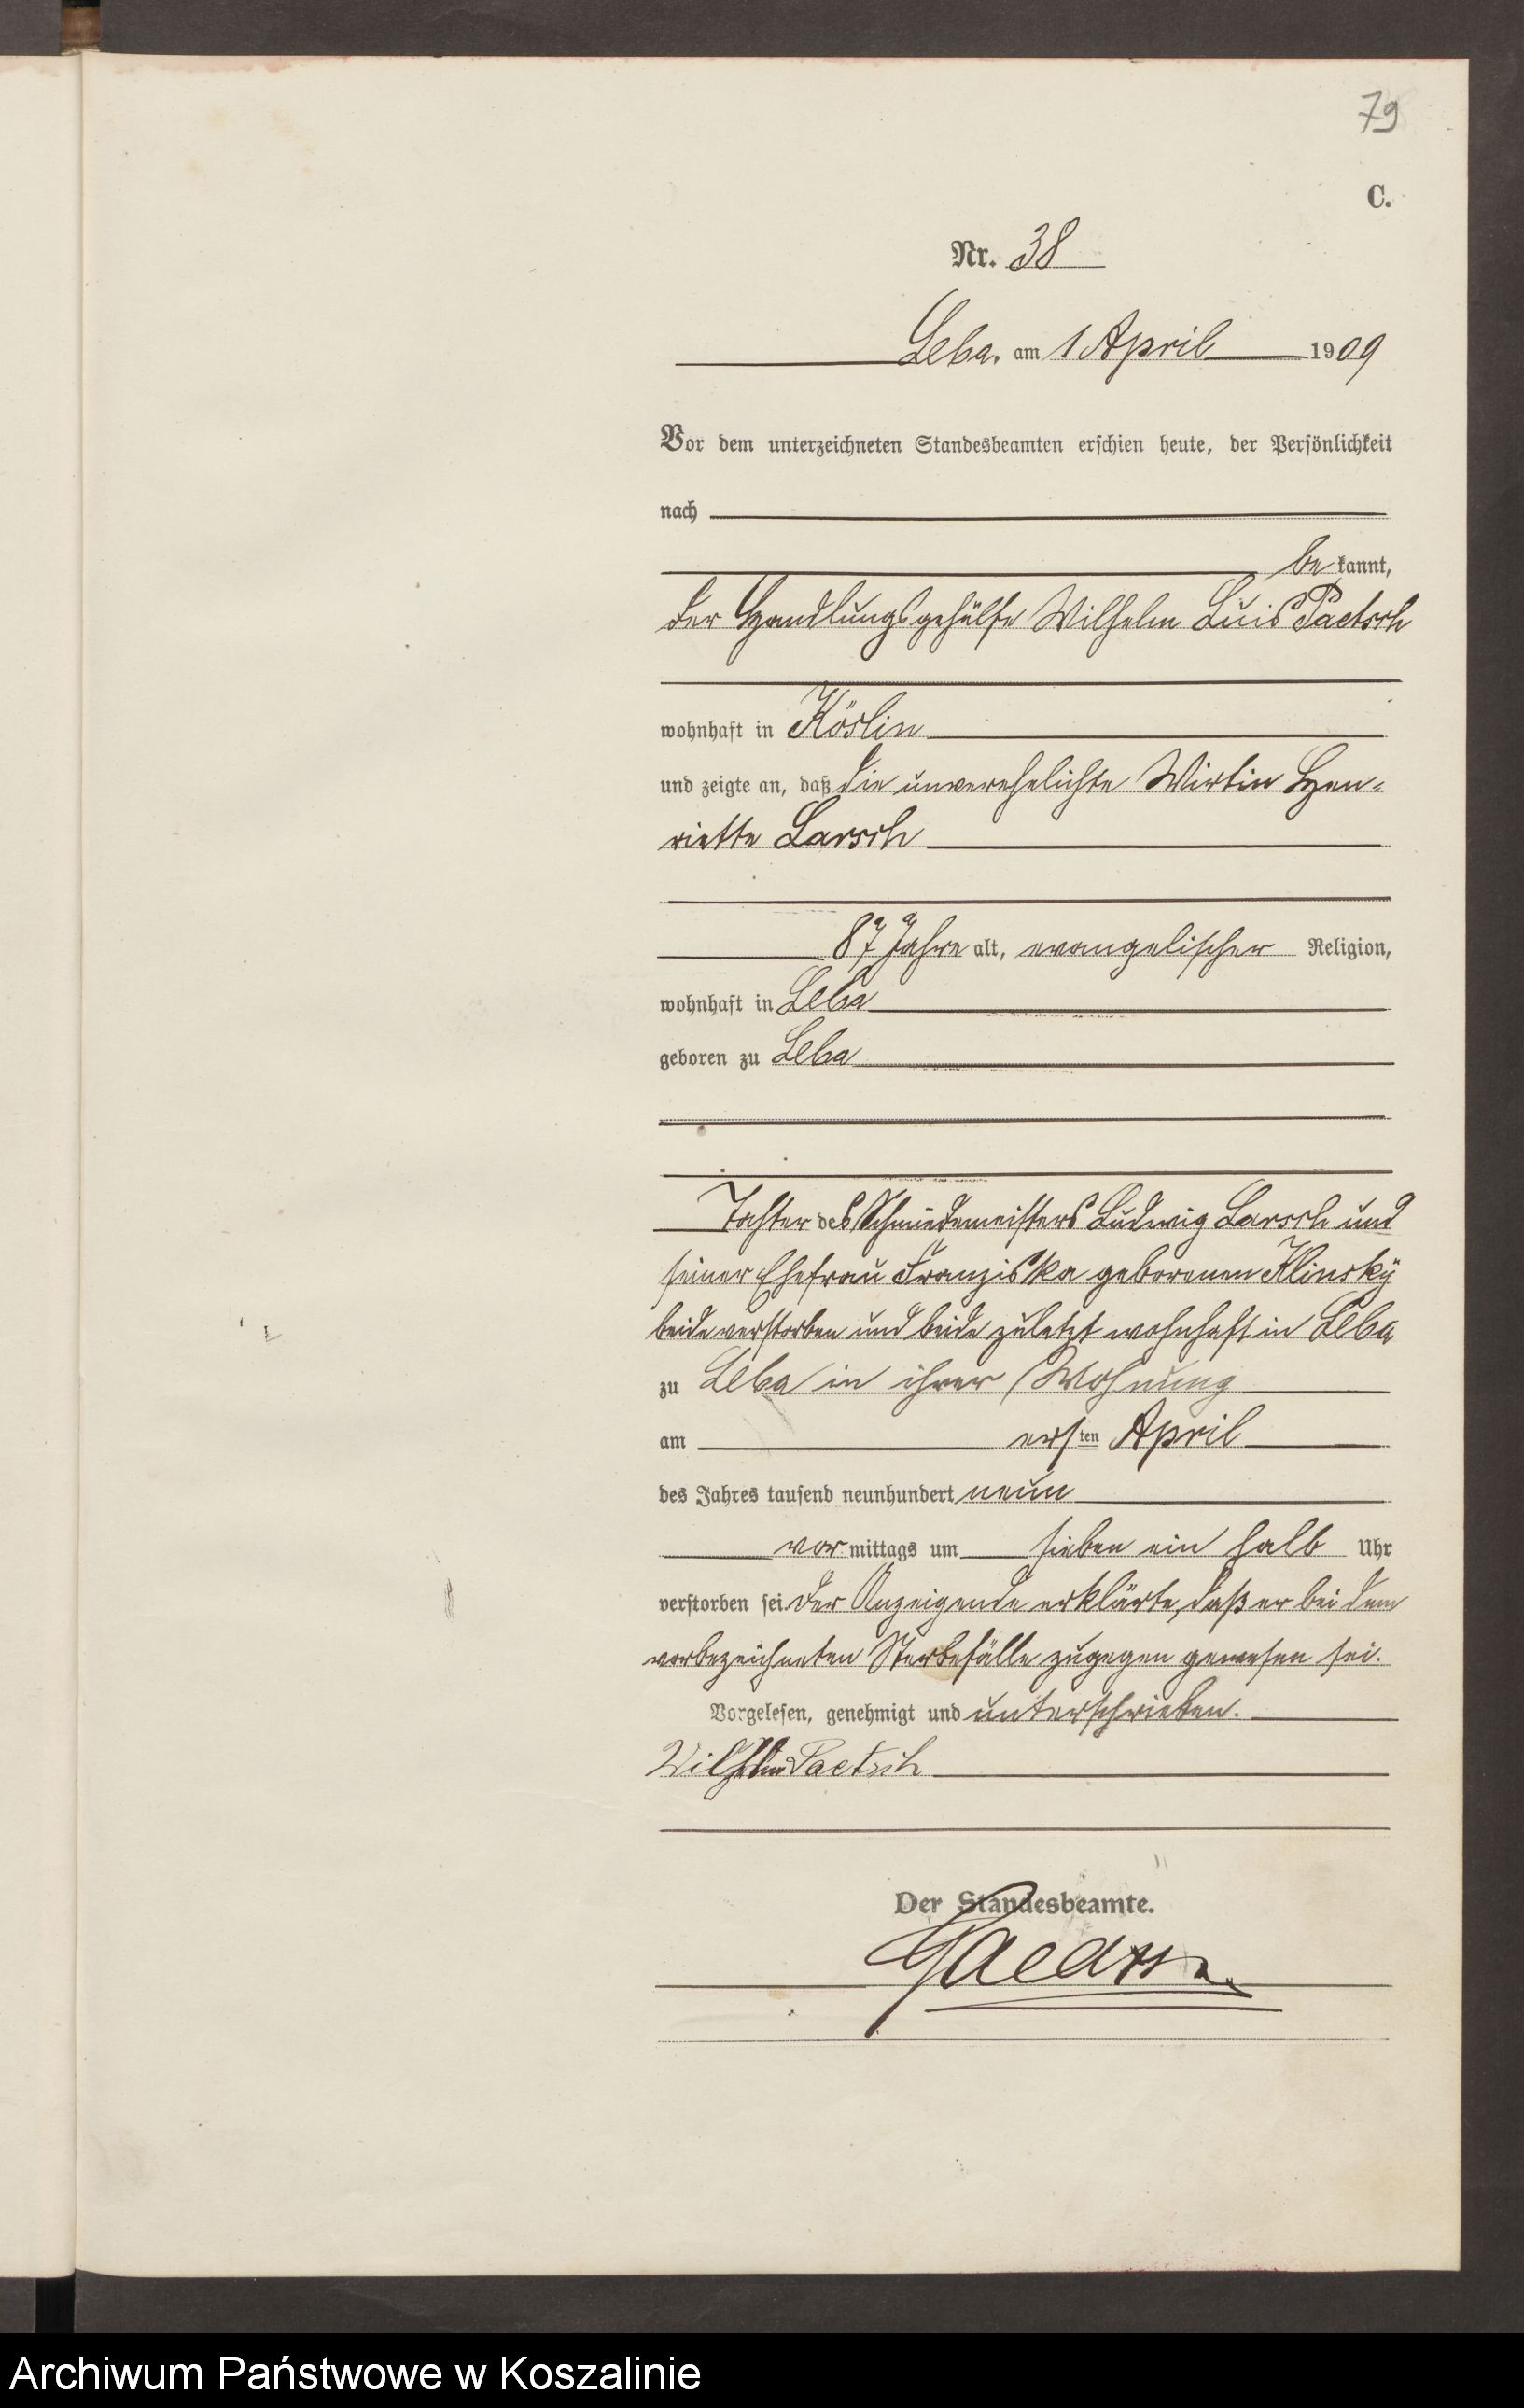 79
C.
Nr. 38
Leba, am 1 April 1909
Vor dem unterzeichneten Standesbeamten erschien heute, der Persönlichkeit
nach
be kannt,
der Handlungsgehülfe Wilhelm Luis Paetsch
wohnhaft in Köslin
und zeigte an, daß die unverehelichte Wirtin Hen-
riette Larsch
87 Jahre alt, evangelischer Religion,
wohnhaft in Leba
geboren zu Leba
Tochter des Schmiedemeisters Ludwig Larsch und
seiner Ehefrau Franziska geborenen Klinsky
beide verstorben und beide zuletzt wohnhaft in Leba
zu Leba in ihrer Wohnung
am ersten April
des Jahres tausend neunhundert neun
vor mittags um sieben ein halb Uhr
verstorben sei. Der Anzeigende erklärte, daß er bei dem
vorbezeichneten Sterbefälle zugegen gewesen sei.
Vorgelesen, genehmigt und unterschrieben.
Wilhelm Paetsch
Der Standesbeamte.
Archiwum Państwowe w Koszalinie